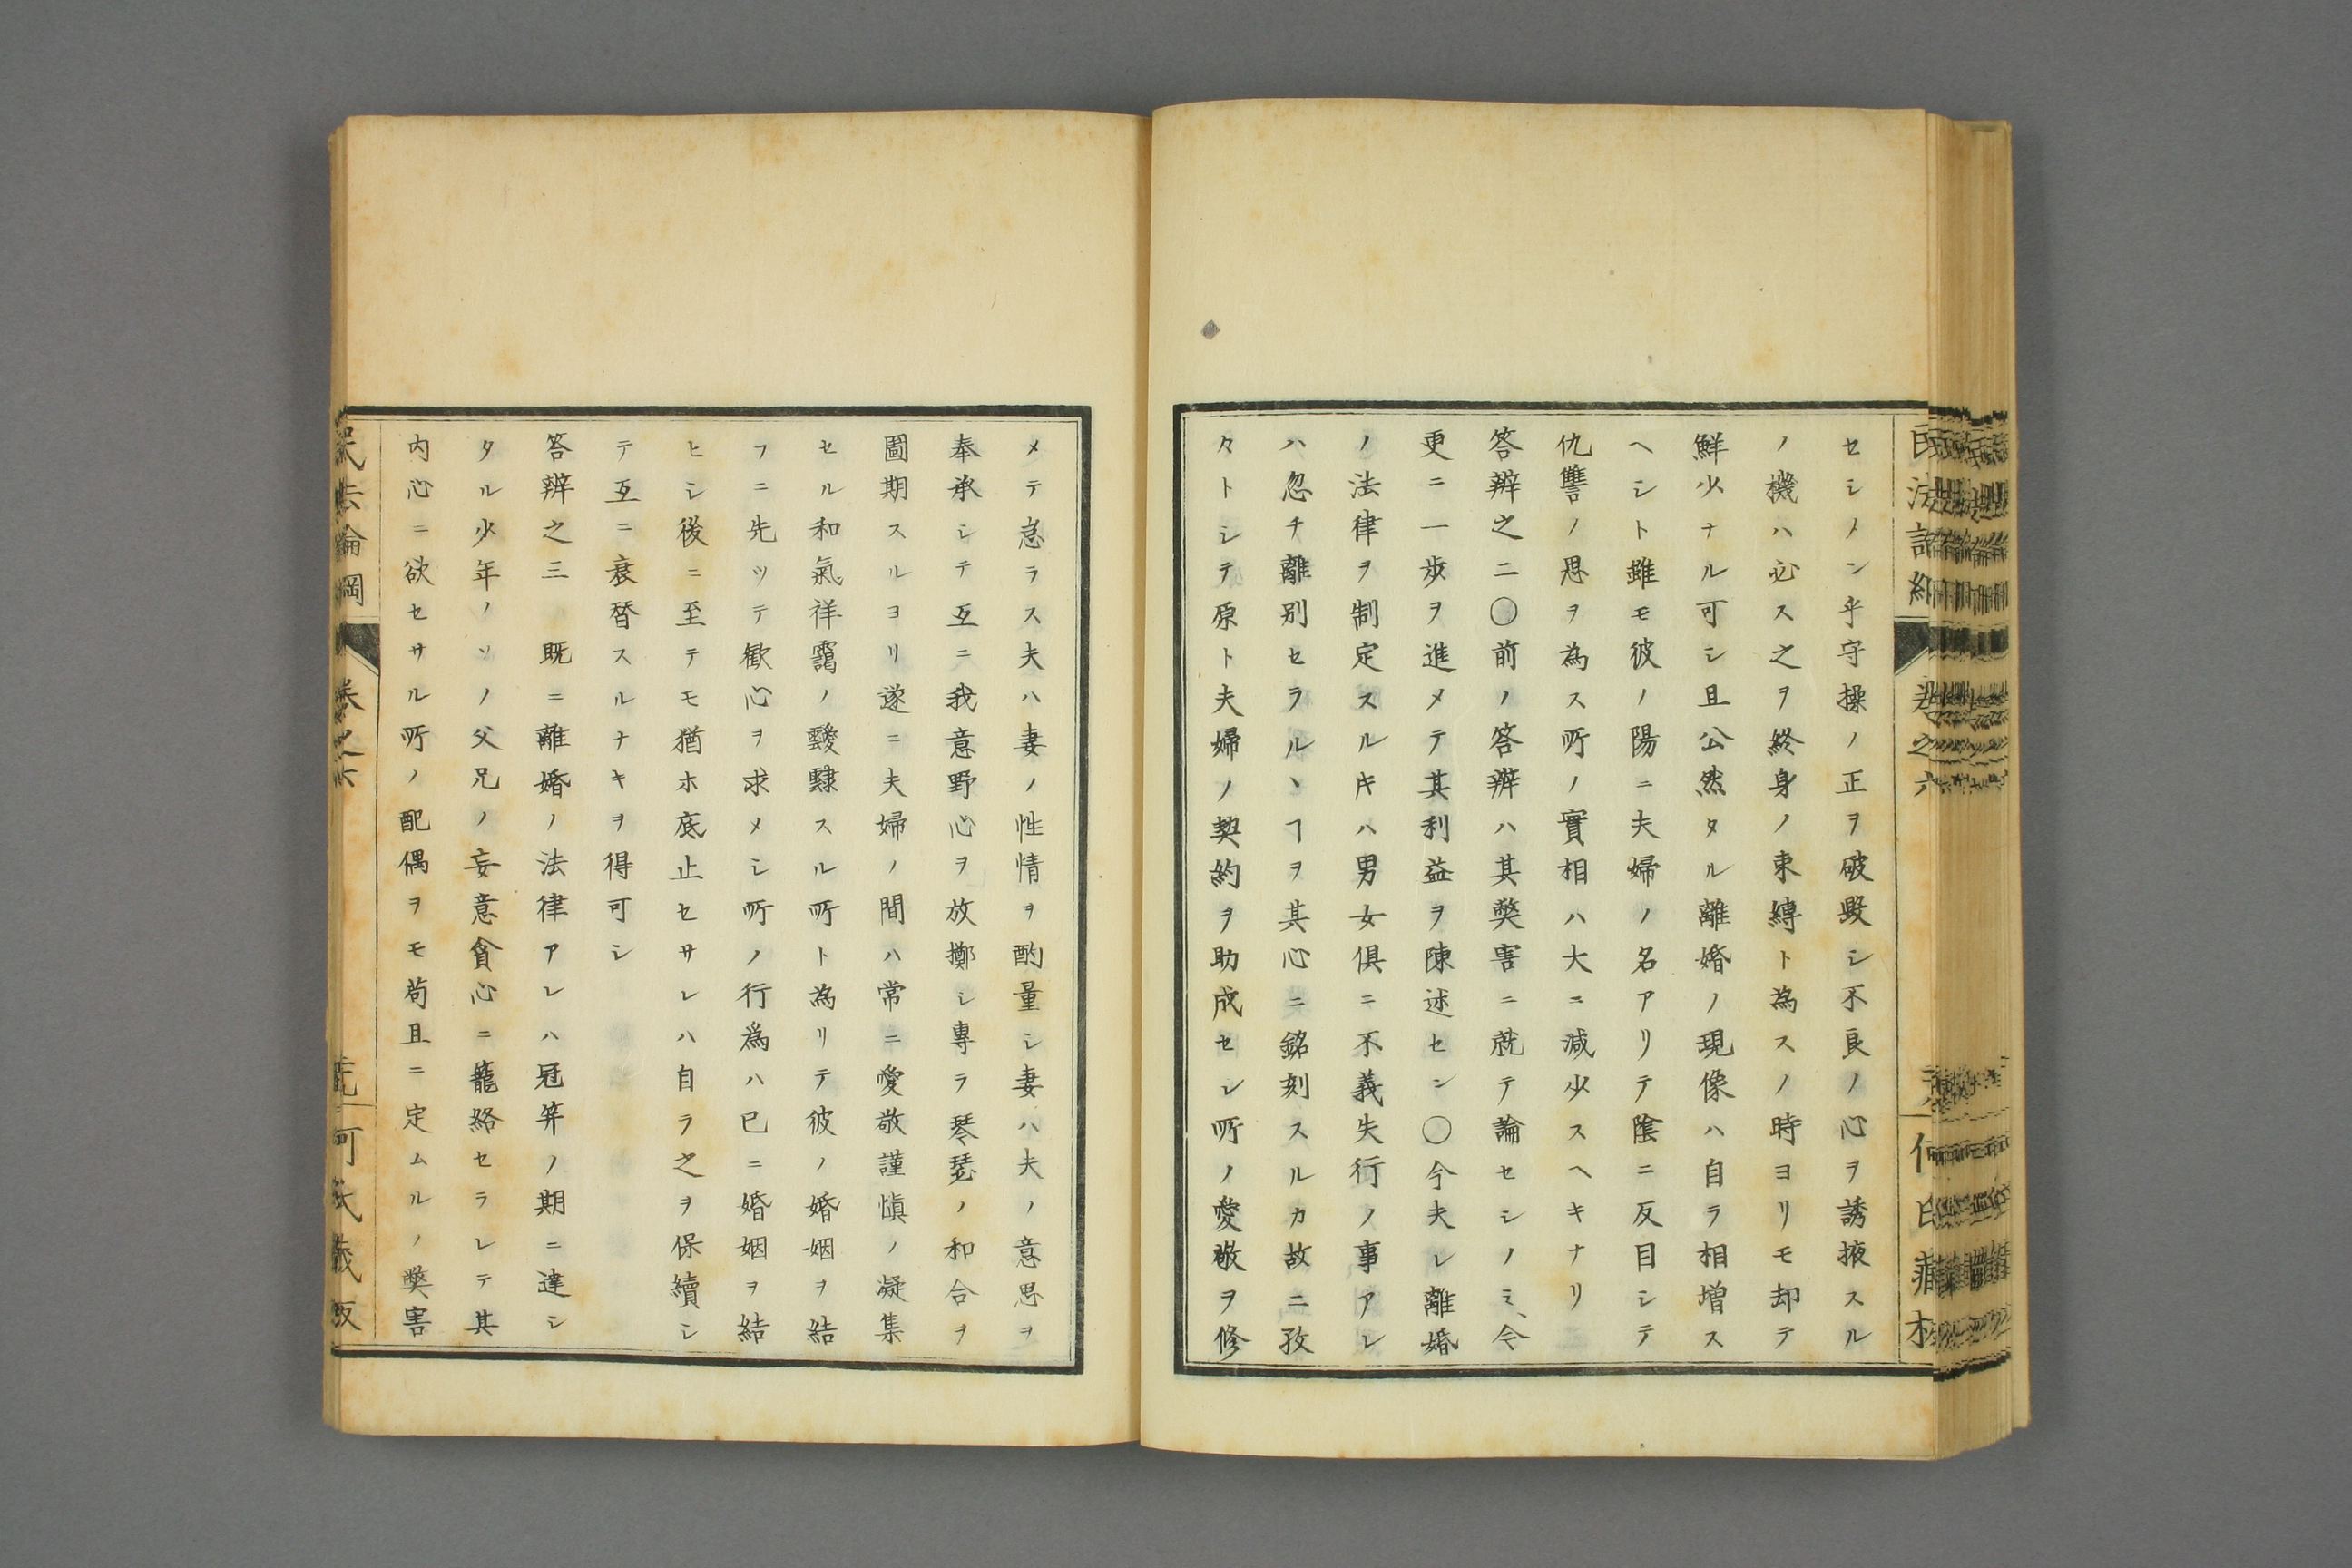 セシメン乎守操ノ正ヲ破毀シ不良ノ心ヲ誘掖スル
ノ機ハ必ス之ヲ終身ノ束縛ト為スノ時ヨリモ却テ
鮮少ナル可シ且公然タル離婚ノ現像ハ自ラ相増ス
ヘシト雖モ彼ノ陽ニ夫婦ノ名アリテ陰ニ反目シテ
仇讐ノ思ヲ為ス所ノ實相ハ大ニ減少スヘキナリ
答辨之二〇前ノ答辨ハ其弊害ニ就テ論セシノミ、今
更ニ一歩ヲ進メテ其利益ヲ陳述セン〇今夫レ離婚
ノ法律ヲ制定スルキハ男女俱ニ不義失行ノ事アレ
ハ忽チ離別セラルヽヿヲ其心ニ銘刻スルカ故ニ孜
々トシテ原ト夫婦ノ契約ヲ助成セシ所ノ愛敬ヲ修
メテ怠ラス夫ハ妻ノ性情ヲ酌量シ妻ハ夫ノ意思ヲ
奉承シテ互ニ我意野心ヲ放擲シ專ラ琴瑟ノ和合ヲ
圖期スルヨリ遂ニ夫婦ノ間ハ常ニ愛敬謹愼ノ凝集
セル和氣祥靄ノ靉靆スル所ト為リテ彼ノ婚姻ヲ結
フニ先ツテ歓心ヲ求メシ所ノ行爲ハ已ニ婚姻ヲ結
ヒシ後ニ至テモ猶ホ底止セサレハ自ラ之ヲ保續シ
テ互ニ衰替スルナキヲ得可シ
答辨之三 既ニ離婚ノ法律アレハ冠笄ノ期ニ達シ
タル少年ノソノ父兄ノ妄意貪心ニ籠絡セラレテ其
内心ニ欲セサル所ノ配偶ヲモ苟且ニ定ムルノ弊害
民法論綱 卷之六 何氏藏版